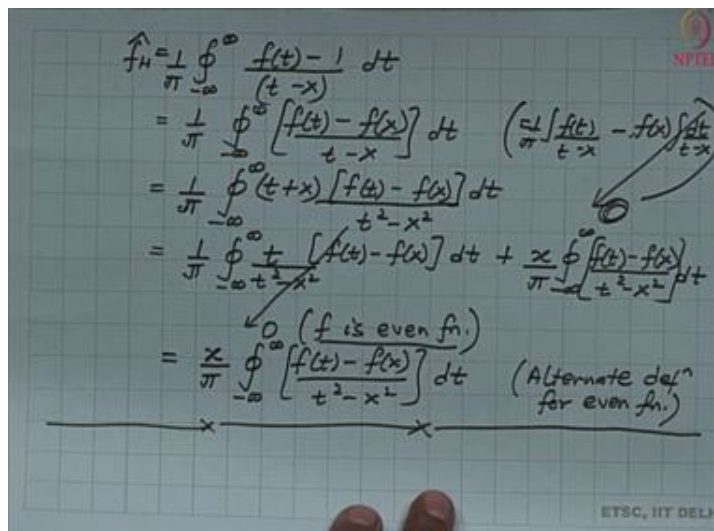 f̂_H = 1/π ∮_{-∞}^{∞} f(t) - 1 / (t - x) dt
NPTEL
= 1/π ∮_{-∞}^{∞} [f(t) - f(x) / t - x] dt (= 1/π ∫ f(t) / t - x - f(x) ∫ dt / t - x)
= 1/π ∮_{-∞}^{∞} (t + x) [f(t) - f(x)] / t² - x² dt 0
= 1/π ∮_{-∞}^{∞} t / t² - x² [f(t) - f(x)] dt + x/π ∮_{-∞}^{∞} [f(t) - f(x) / t² - x²] dt
0 (f is even fn.)
= x/π ∮_{-∞}^{∞} [f(t) - f(x) / t² - x²] dt (Alternate defⁿ
for even fn.)
ETSC, IIT DELHI